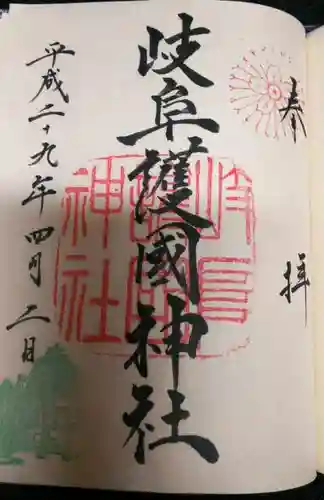 奉拝
岐阜護國神社
平成二十九年四月二日
岐阜護國神社